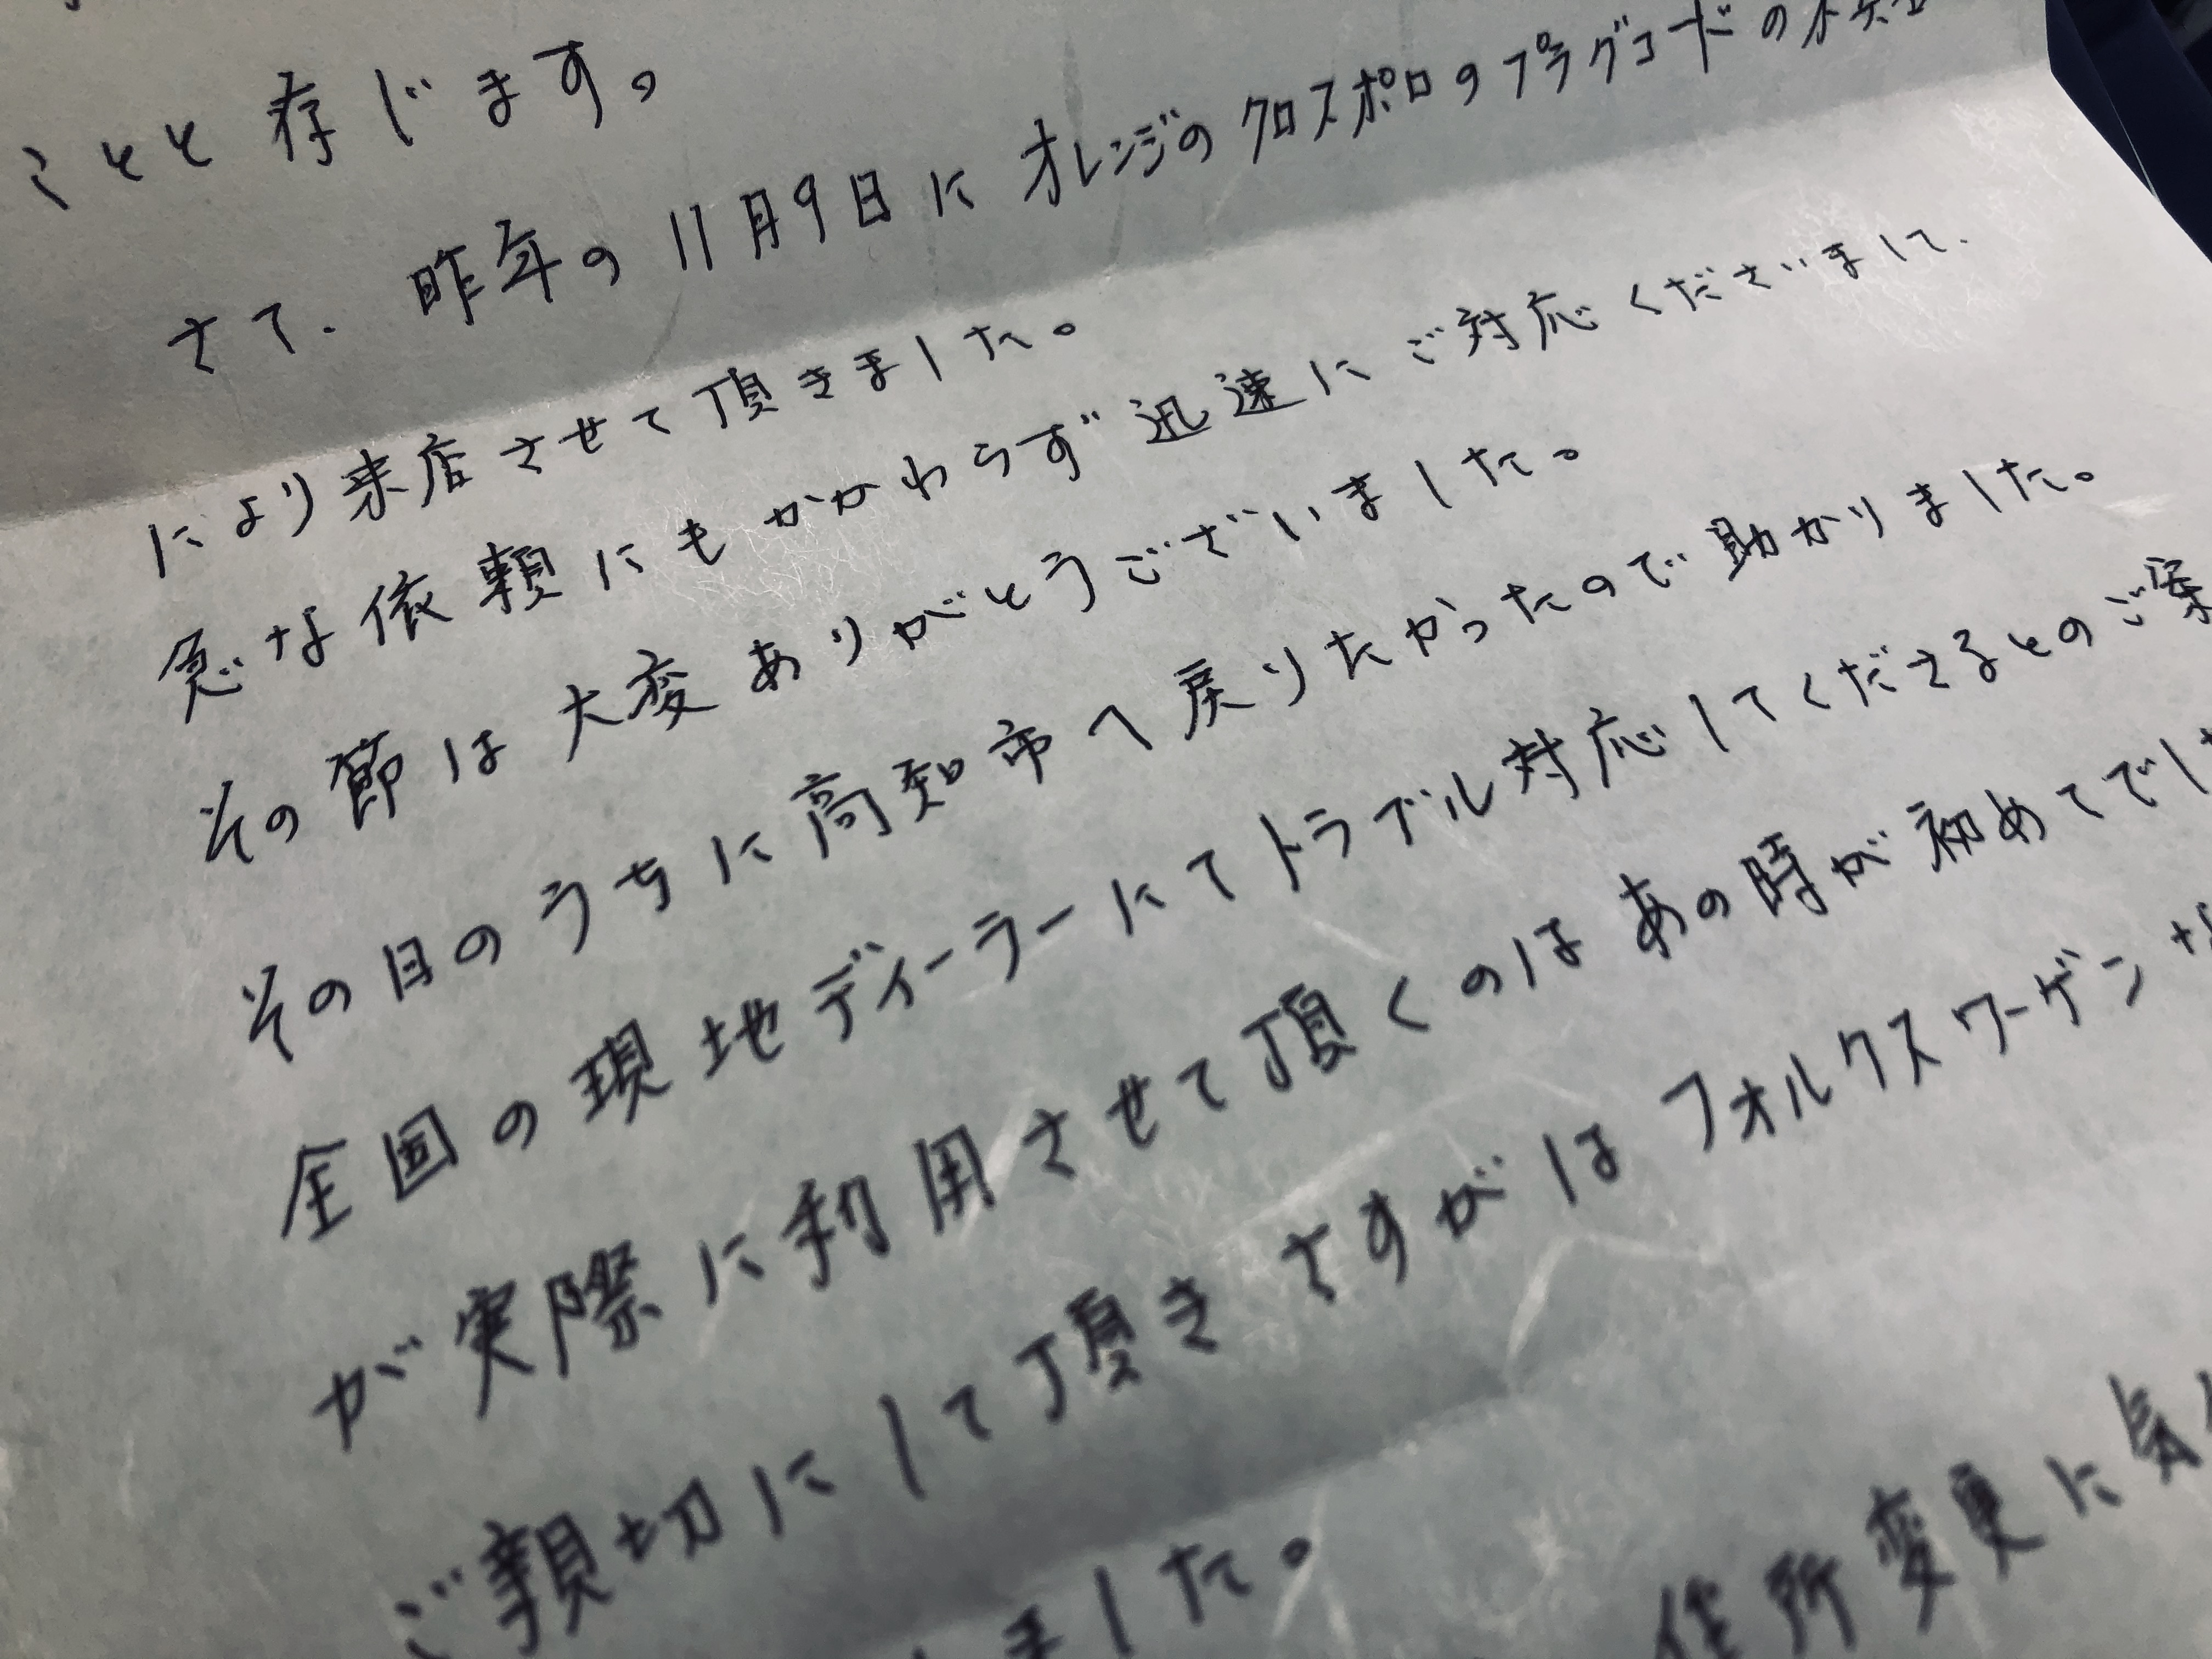 ことと存じます。
さて、昨年の11月9日にオレンジのクロスポロのプラグコードの
により来店させて頂きました。
急な依頼にもかかわらず迅速にご対応くださいまして、
その節は大変ありがとうございました。
その日のうちに高知市へ戻りたかったので助かりました。
全国の現地ディーラーにてトラブル対応してくださるとのご案
が実際に利用させて頂くのはあの時が初めてでした
ご親切にして頂きさすがはフォルクスワーゲンな
ました。
住所変更に気